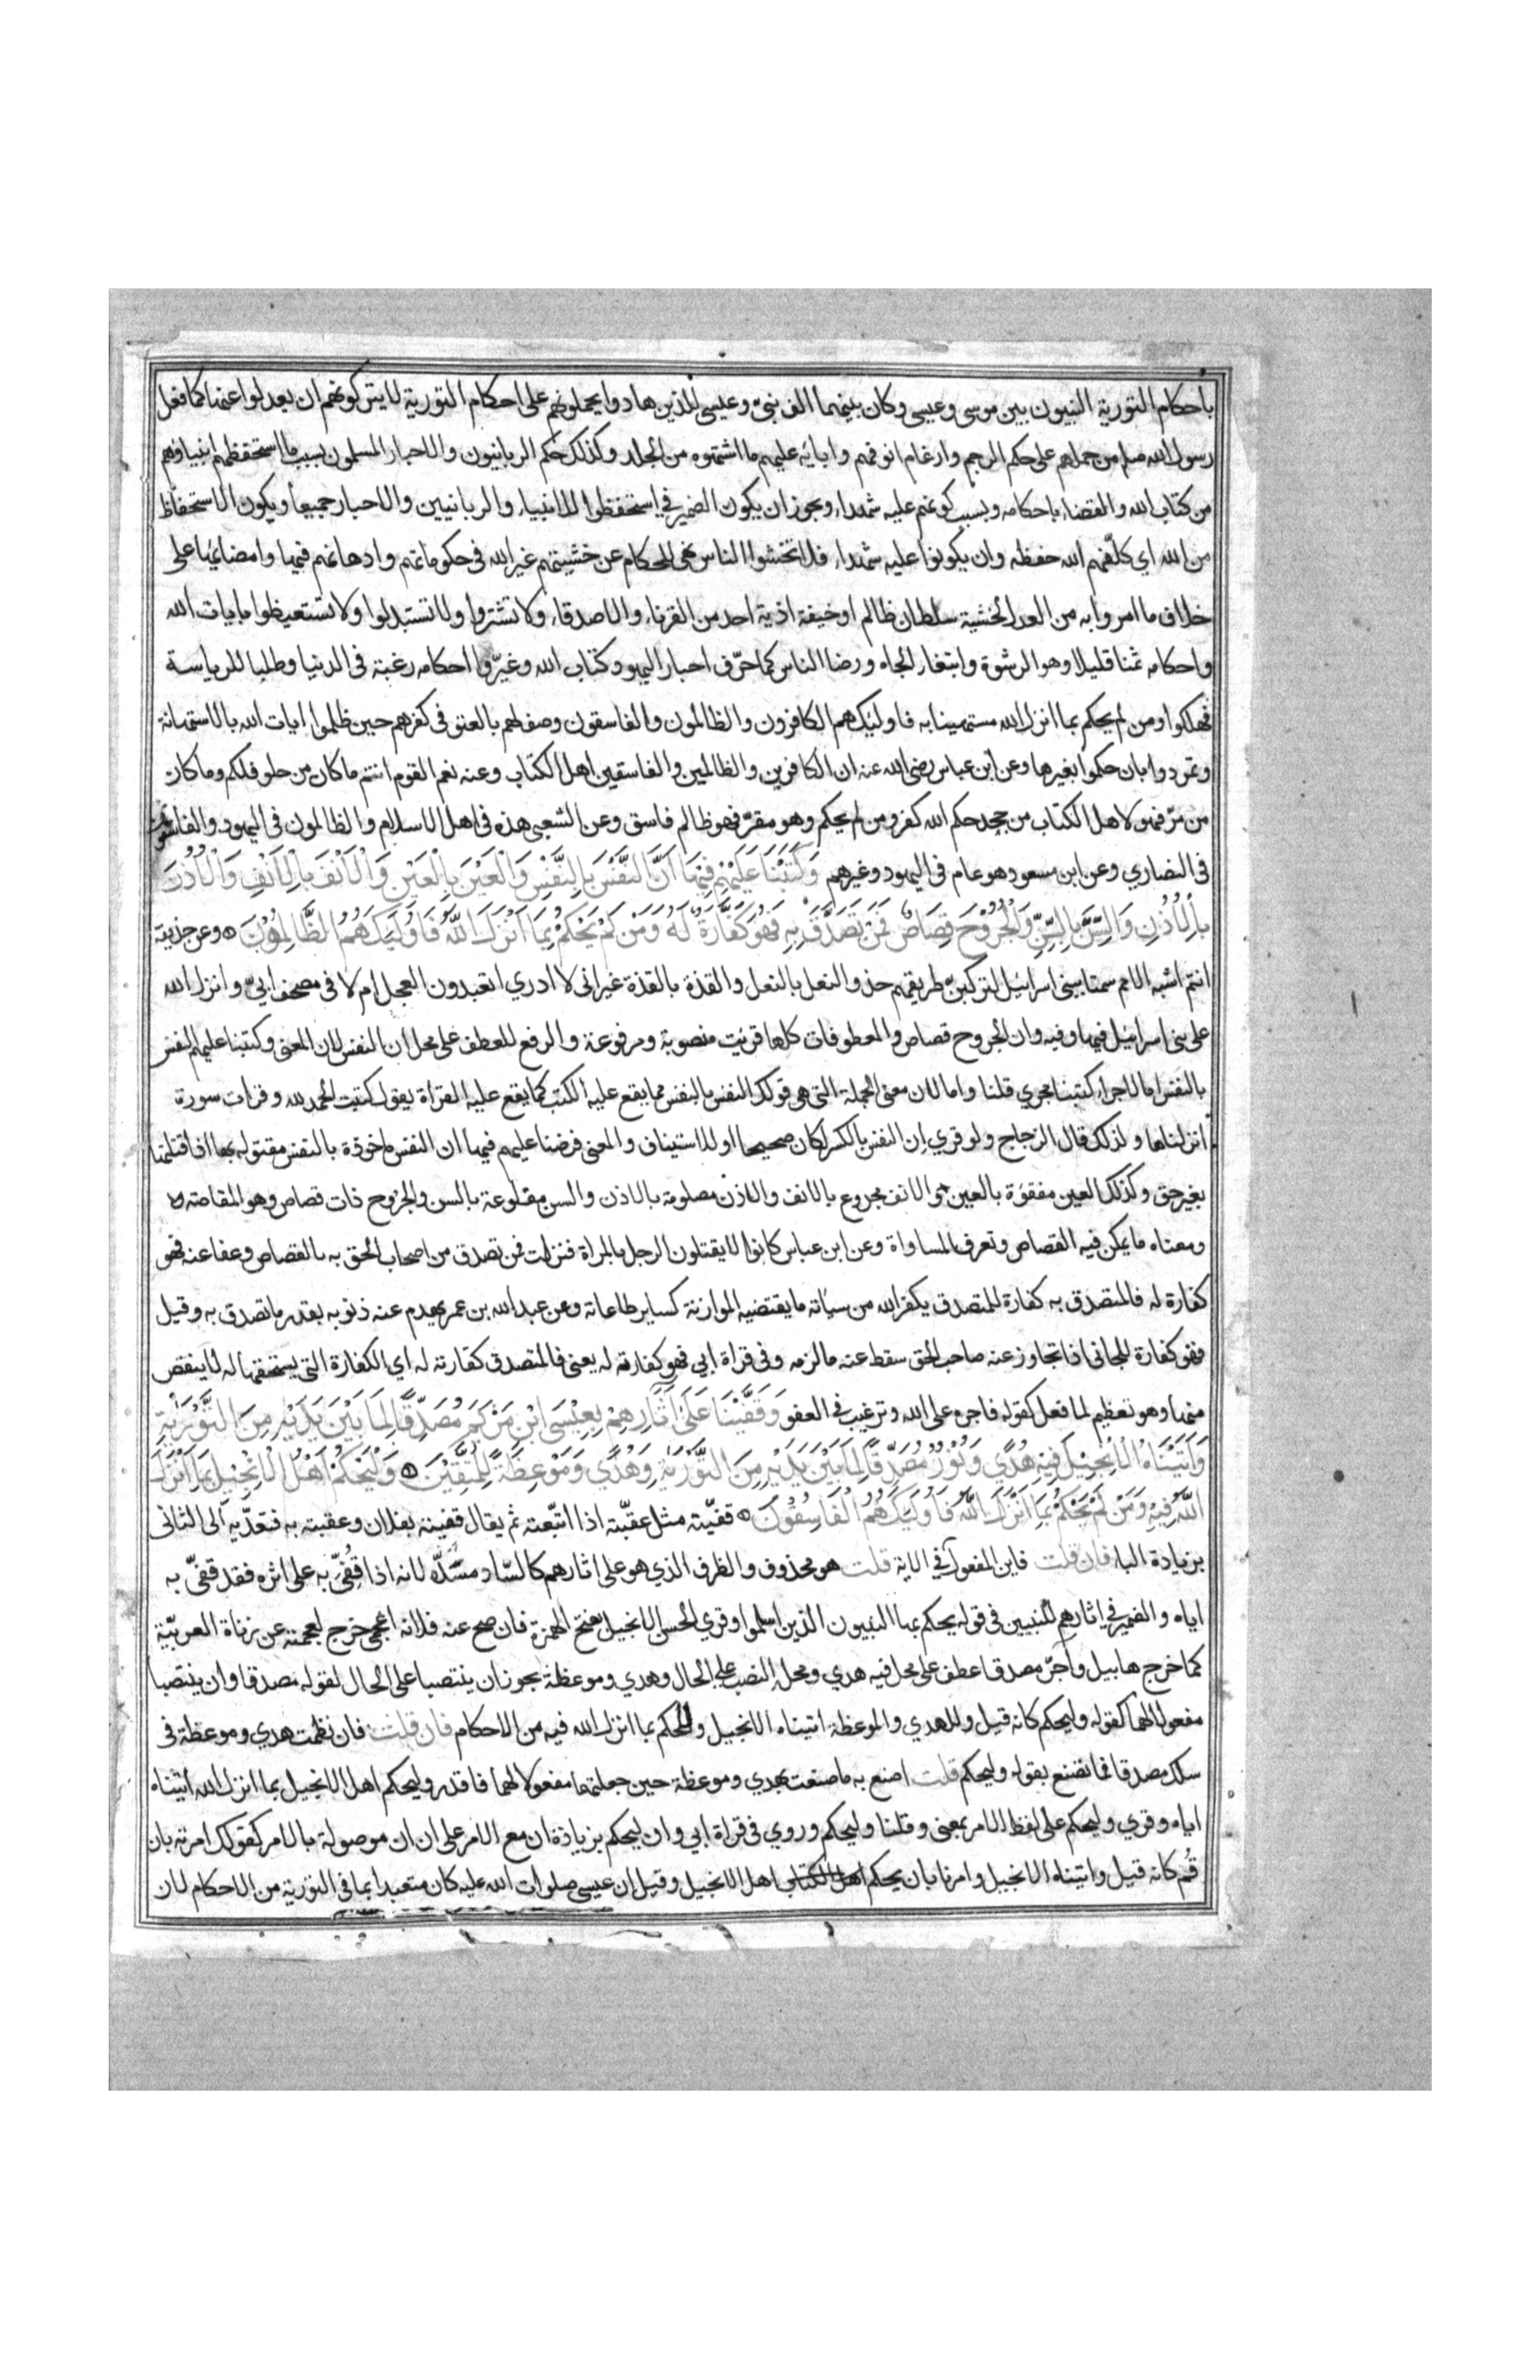 باحكام التورية النبيون بين موسى وعيسى وكان بينهما الف نبىّ وعيسى للذين هادوا يحملونهم على احكام التورية لا يتركونهم ان يعدلوا عنها كما فعل
رسول الله صلم من حملهم على حكم الرجم وارغام انوفهم وابائه عليهم ما اشتهوه من الجلد وكذلك حكم الربانيون والاحبار المسلمون بسبب ما استحفظهم انبياؤهم
من كتاب الله والقضاء باحكامه وبسبب كونهم عليه شهداء ويجوز ان يكون الضمير في استحفظوا للانبياء والربانيين والاحبار جميعا ويكون الاستحفاظ
من الله اي كلّفهم الله حفظه وان يكونوا عليه شهداء فلا تخشوا الناس نهى للحكام عن خشيتهم غير الله فى حكوماتهم وادهانهم فيها وامضائها على
خلاف ما امروا به من العدل لخشية سلطان ظالم او خيفة اذية احد من القرناء والاصدقاء ولا تشتروا ولا تستبدلوا ولا تستعيضوا بايات الله
واحكامه ثمنا قليلا وهو الرشوة وابتغاء الجاه ورضا الناس كما حرّف احبار اليهود كتاب الله وغيّروا احكامه رغبة فى الدنيا وطلبا للرياسة
فهلكوا ومن لم يحكم بما انزل الله مستهينا به فاوليك هم الكافرون والظالمون والفاسقون وصف لهم بالعتو فى كفرهم حين ظلموا ايات الله بالاستهانة
وتمردوا بان حكموا بغيرها وعن ابن عباس رضى الله عنه ان الكافرين والظالمين والفاسقين اهل الكتاب وعنه نعم القوم انتم ما كان من حلو فلكم وما كان
من مرّ فهو لاهل الكتاب من جحد حكم الله كفر ومن لم يحكم وهو مقرّ فهو ظالم فاسق وعن الشعبى هذه فى اهل الاسلام والظالمون فى اليهود والفاسقون
فى النصاري وعن ابن مسعود هو عام فى اليهود وغيرهم وَكَتَبْنَا عَلَيْهِمْ فِيْهَا اَنَّ النَّفْسَ بِالنَّفْسِ وَالْعَيْنَ بِالْعَيْنِ وَالْاَنْفَ بِالْاَنْفِ وَالْاُذُنَ
بِالْاُذُنِ وَالسِّنَّ بِالسِّنِّ وَالْجُرُوْحَ قِصَاصٌ فَمَنْ تَصَدَّقَ بِهٖ فَهُوَ كَفَّارَةٌ لَهٗ وَمَنْ لَمْ يَحْكُمْ بِمَا اَنْزَلَ اللّٰهُ فَاُولَيِكَ هُمُ الظَّالِمُوْنَ وعن حذيفة
انتم اشبه الامم سمتا ببنى اسرائيل لتركبنّ طريقهم حذو النعل بالنعل والقذة بالقذة غير انى لا ادري اتعبدون العجل ام لا فى مصحف ابىّ وانزل الله
على بنى اسرائيل فيها وفيه وان الجروح قصاص والمعطوفات كلها قرئت منصوبة ومرفوعة والرفع للعطف على محل ان النفس لان المعنى وكتبنا عليهم النفس
بالنفس اما لاجراء كتبنا مجري قلنا واما لان معنى الجملة التى هى قولك النفس بالنفس مما يقع عليه الكتب كما يقع عليه القراة يقول كتبت الحمد لله وقرات سورة
انزلناها ولذلك قال الزجاج ولو قري اِن النفس بالكسر لكان صحيحا او للاستيناف والمعنى فرضنا عليهم فيها ان النفس ماخوذة بالنفس مقتولة بها اذا قتلتها
بغير حق وكذلك العين مفقؤة بالعين والانف مجدوع بالانف والاذن مصلومة بالاذن والسن مقلوعة بالسن والجروح ذات قصاص وهو المقاصة
ومعناه ما يمكن فيه القصاص وتعرف المساواة وعن ابن عباس كانوا لا يقتلون الرجل بالمراة فنزلت فمن تصدق من اصحاب الحق به بالقصاص وعفا عنه فهو
كفارة له فالتصدق به كفارة للمتصدق يكفر الله من سيّاته ما يقتضيه الموازنة كساير طاعاته وعن عبد الله بن عمر يهدم عنه ذنوبه بقدر ما تصدق به وقيل
فهو كفارة للجانى اذا تجاوز عنه صاحب الحق سقط عنه ما لزمه وفى قراة ابي فهو كفارته له يعنى فالمتصدق كفارته له اي الكفارة التى يستحقها له لا ينقص
منها وهو تعظيم لما فعل كقوله فاجره على الله وترغيب فى العفو وَقَفَّيْنَا عَلَى اٰثَارِهِمْ بِعِيْسَى ابْنِ مَرْيَمَ مُصَدِّقًا لِمَا بَيْنَ يَدَيْهِ مِنَ التَّوْرٰيةِ
وَاٰتَيْنَاهُ الْاِنْجِيْلَ فِيْهِ هُدًي وَنُوْرٌ وَمُصَدِّقًا لِمَا بَيْنَ يَدَيْهِ مِنَ التَّوْرٰيةِ وَهُدًي وَمَوْعِظَةً لِلْمُتَّقِيْنَ وَلْيَحْكُمْ اَهْلُ الْاِنْجِيْلِ بِمَا اَنْزَلَ
اللّٰهُ فِيْهِ وَمَنْ لَمْ يَحْكُمْ بِمَا اَنْزَلَ اللّٰهُ فَاُولَيِكَ هُمُ الْفَاسِقُوْنَ قفيّته مثل عقّبته اذا اتّبعته ثم يقال قفيته بفلان وعقبته به فتعدّيه الى الثانى
بزيادة الباء فان قلت فاين المفعول فى الاية قلت هو محذوف والظرف الذي هو على اثارهم كالسّاد مسَدّه لانه اذا قفّى به على اثره فقد قفّى به
اياه والضمير في اثارهم للنبيين فى قوله يحكم بها النبيون الذين اسلموا وقري الحسن الانجيل بفتح الهمزة فان صح عنه فلانه اعجمى خرج لعجمته عن زناة العربيّة
كما خرج هابيل وآجرّ مصدقا عطف على محل فيه هدي ومحله النصب على الحال وهدي وموعظة يجوز ان ينتصبا على الحال لقوله مصدقا وان ينتصبا
مفعولا لهما كقوله وليحكم كانه قيل وللهدي والموعظة اتيناه الانجيل وللحكم بما انزل الله فيه من الاحكام فان قلت فان نظمت هدي وموعظة فى
سلك مصدقا فما تصنع بقوله وليحكم قلت اصنع به ما صنعت بهدي وموعظة حين جعلتهما مفعولا لهما فاقدر وليحكم اهل الانجيل بما انزل الله اتيناه
اياه وقري وليحكم على لفظ الامر بمعنى وقلنا وليحكم وروي فى قراة ابي وان ليحكم بزيادة ان مع الامر على ان ان موصولة بالامر كقولك امرته بان
قُم كانه قيل واتيناه الانجيل وامرنا بان يحكم اهل الكتاب اهل الانجيل وقيل ان عيسى صلوات الله عليه كان متعبدا بما فى التورية من الاحكام لان